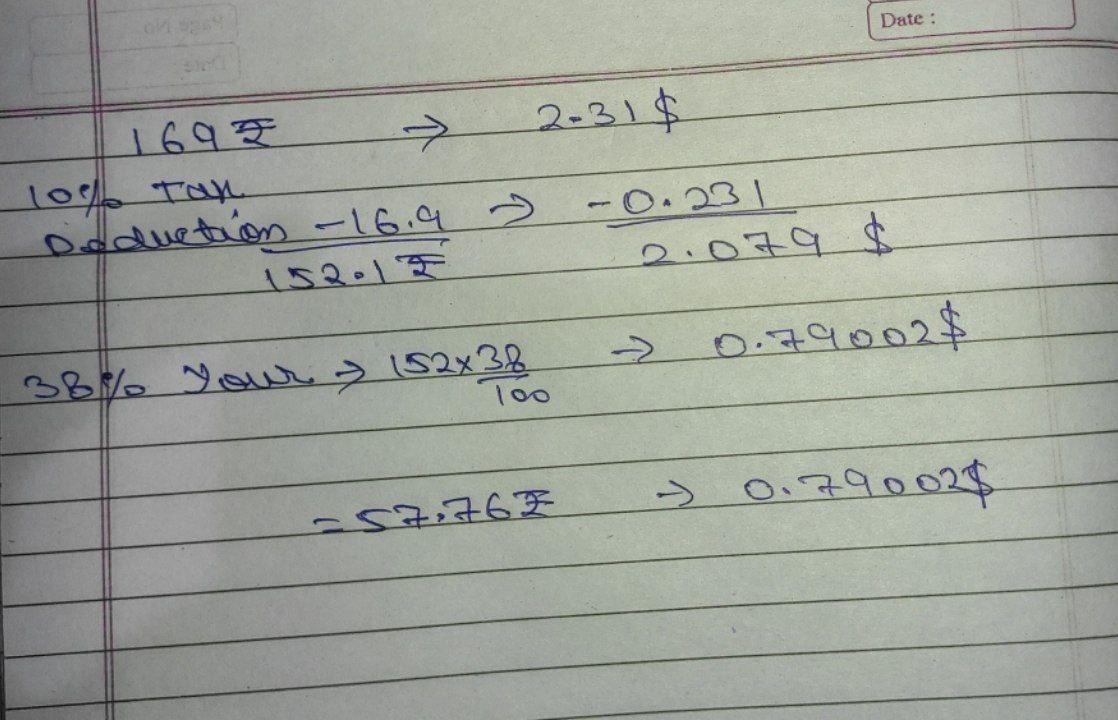 Date :
169₹ → 2.31$
10% Tax
Deduction -16.9 → -0.231
152.1₹ 2.079 $
38% Your → 152x38/100 → 0.79002$
= 57.76₹ → 0.79002$